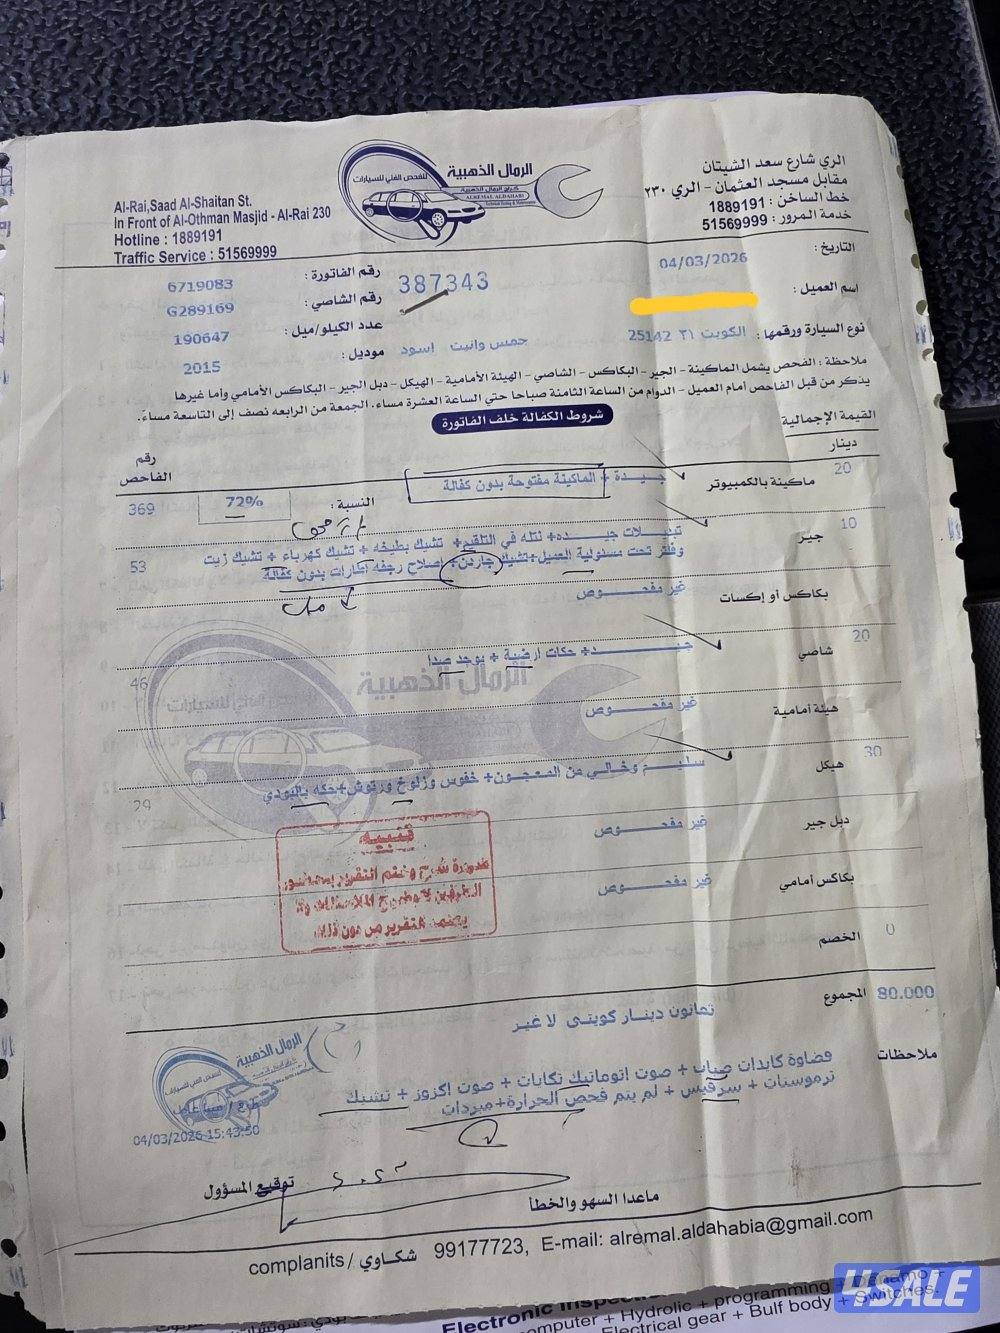 الري شارع سعد الشيتان
مقابل مسجد العثمان - الري ٢٣٠
خط الساخن : 1889191
خدمة المرور : 51569999
الرمال الذهبية
للفحص الفني للسيارات
كراج الرمال الذهبية
ALREMAL ALDAHABI
Al-Rai,Saad Al-Shaitan St.
In Front of Al-Othman Masjid - Al-Rai 230
Hotline : 1889191
Traffic Service : 51569999
التاريخ : 04/03/2026
387343
رقم الفاتورة : 6719083
اسم العميل :
رقم الشاصي : G289169
نوع السيارة ورقمها : الكويت ٣١ 25142
جمس وانيت اسود
عدد الكيلو/ميل : 190647
موديل : 2015
ملاحظة : الفحص يشمل الماكينة - الجير - البكاكس - الشاصي - الهيئة الأمامية - الهيكل - دبل الجير - البكاكس الأمامي وأما غيرها
يذكر من قبل الفاحص أمام العميل - الدوام من الساعة الثامنة صباحا حتي الساعة العشرة مساء. الجمعة من الرابعه نصف إلى التاسعة مساءً.
شروط الكفالة خلف الفاتورة
القيمة الإجمالية
دينار
رقم الفاحص
20 ماكينة بالكمبيوتر
جيدة + الماكينة مفتوحة بدون كفالة
النسبة : 72% 369
10 جير
تبديلات جيده + نتله في التلقيم + تشيك بطيخه + تشيك كهرباء + تشيك زيت
وفلتر تحت مسئولية العميل + تشيك جاردن + إصلاح رجفه إطارات بدون كفالة
53
بكاكس أو إكسات غير مفحوص
20 شاصي
جيد + حكات ارضية + يوجد صدا
46
هيئة أمامية غير مفحوص
30 هيكل
سليم وخالي من المعجون + خفوس وزلوخ ورتوش + حكه بالبودي
29
دبل جير غير مفحوص
بكاكس أمامي غير مفحوص
تنبيه
ضرورة شرح وختم التقرير بحضور
الطرفين لتوضيح الملاحظات ولا
يعتمد التقرير من دون ذلك
0 الخصم
80.000 المجموع
ثمانون دينار كويتي لا غير
ملاحظات
فضاوة كابدات صباب + صوت اتوماتيك تكايات + صوت اكزوز + تشيك
ترموستات + سرفيس + لم يتم فحص الحرارة + مبردات
الرمال الذهبية
للفحص الفني للسيارات
04/03/2026 15:43:50
توقيع المسؤول
ماعدا السهو والخطأ
complanits / شكاوي 99177723, E-mail: alremal.aldahabia@gmail.com
4SALE